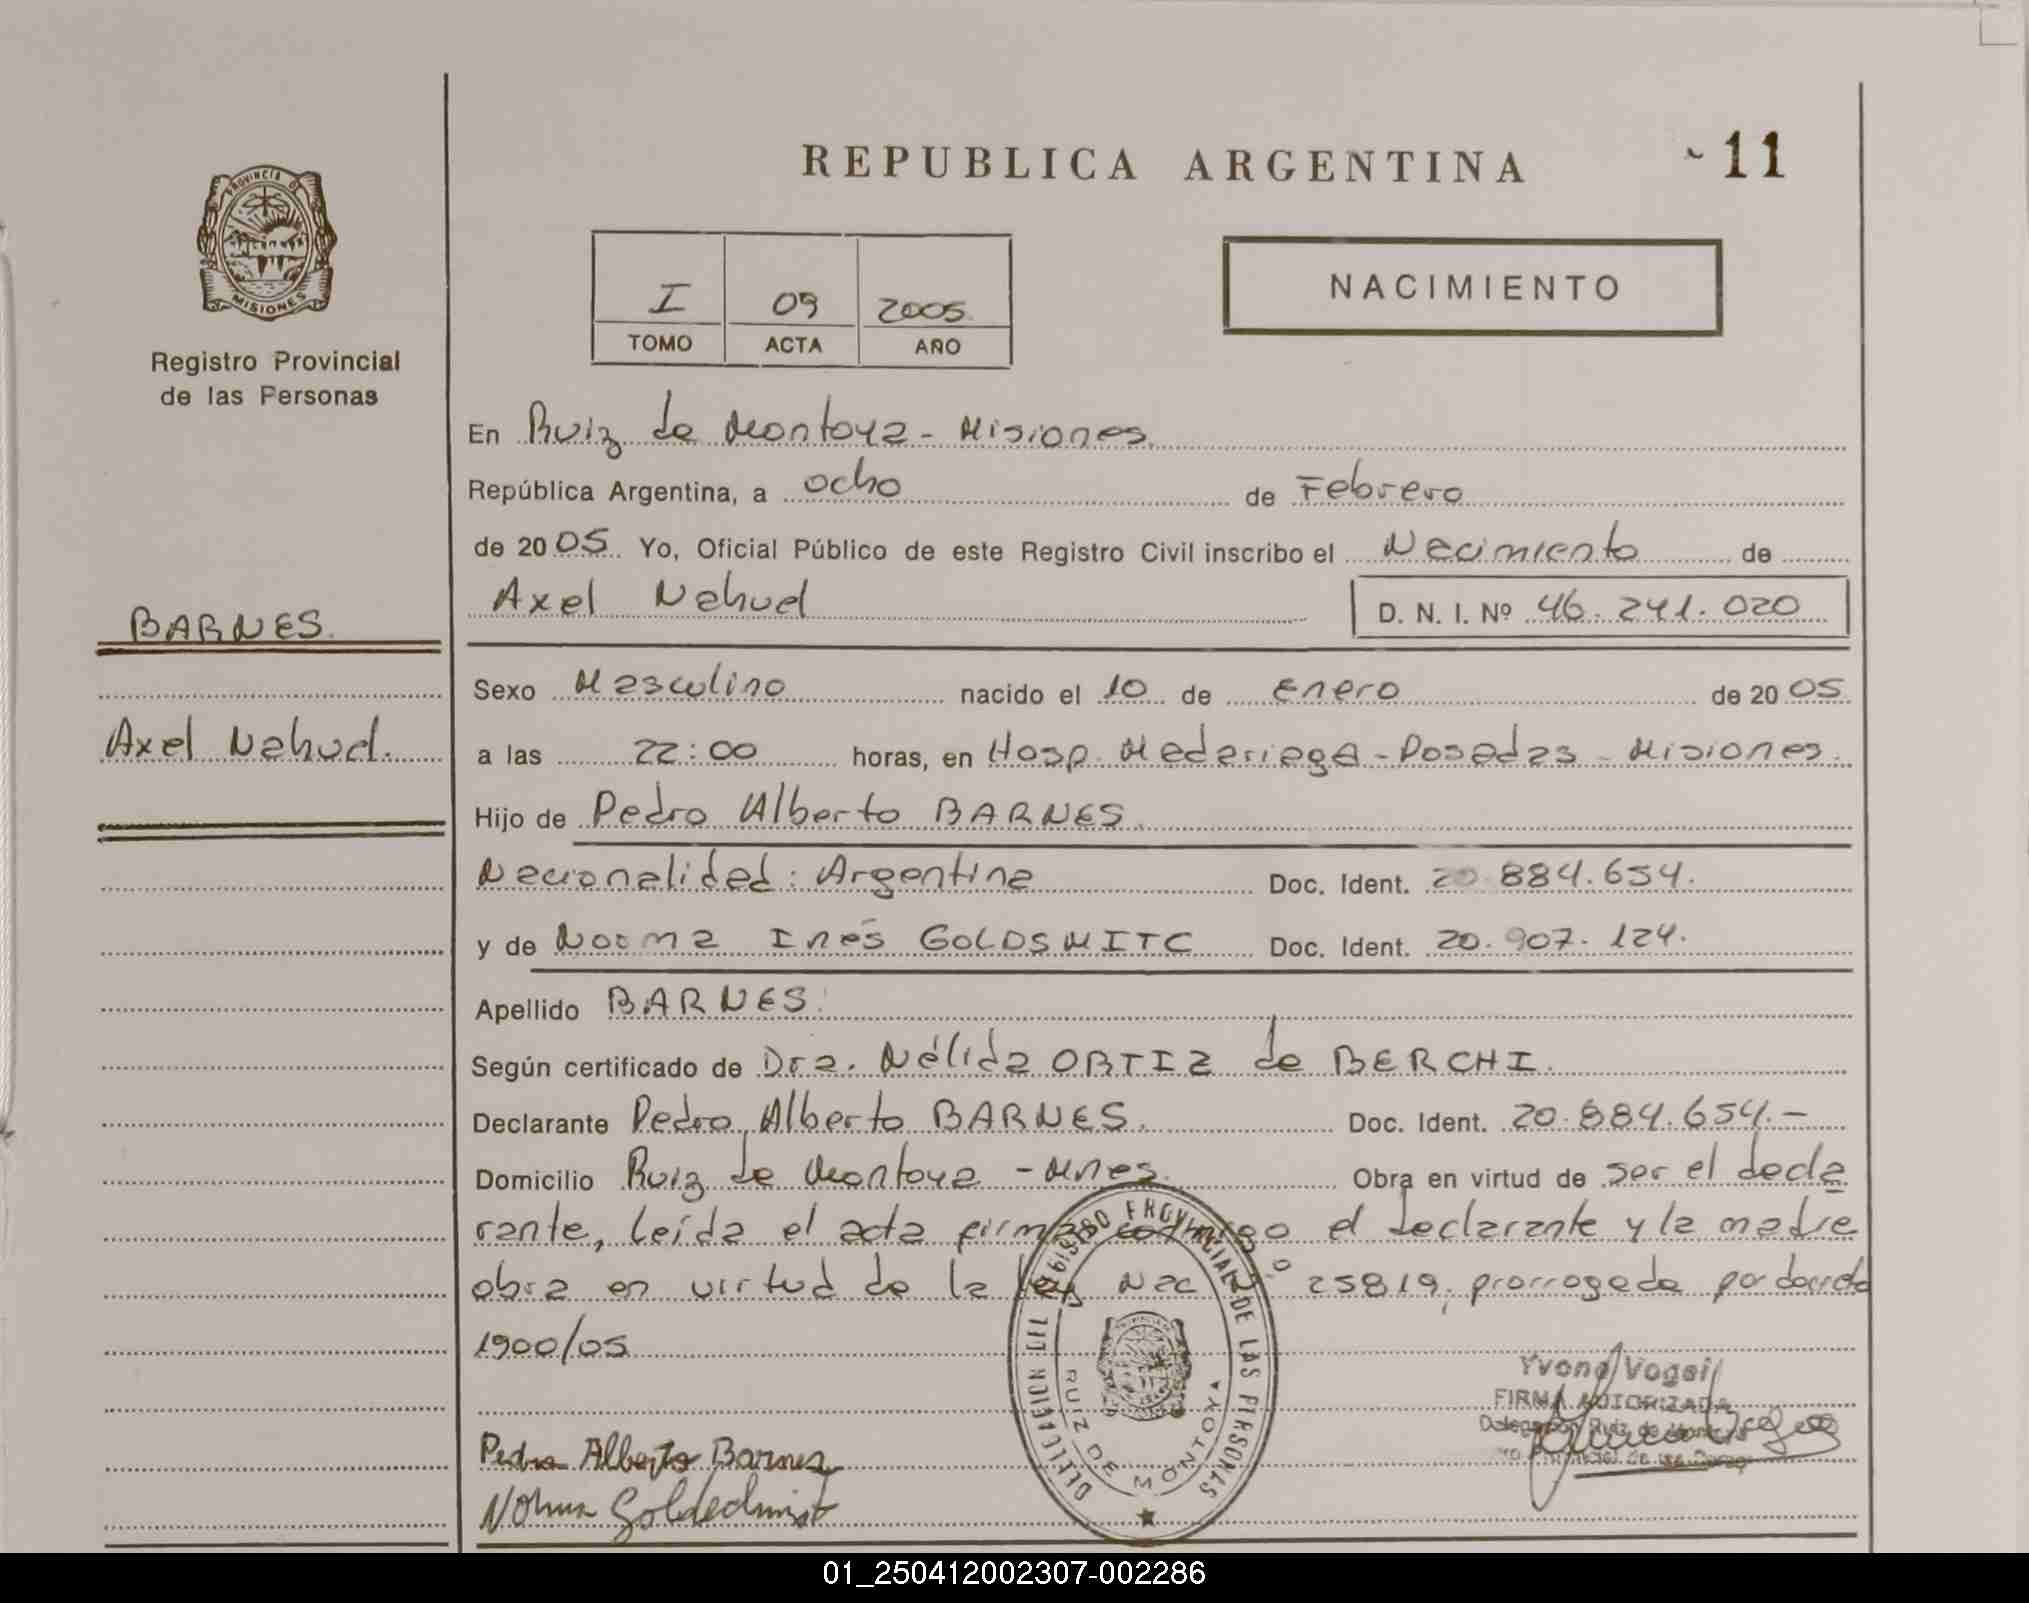 REPUBLICA ARGENTINA
11
PROVINCIA DE
MISIONES
Registro Provincial
de las Personas
I 09 2005
TOMO ACTA AÑO
NACIMIENTO
En Ruiz de Montoya - Misiones
República Argentina, a ocho de Febrero
de 2005 Yo, Oficial Público de este Registro Civil inscribo el Nacimiento de
Axel Nahuel D. N. I. Nº 46.241.020
BARNES
Axel Nahuel.
Sexo Masculino nacido el 10 de enero de 2005
a las 22:00 horas, en Hosp. Madariaga - Posadas - Misiones.
Hijo de Pedro Alberto BARNES
Nacionalidad: Argentina Doc. Ident. 20.884.654.
y de Norma Inés GOLDSMITC Doc. Ident. 20.907.124.
Apellido BARNES.
Según certificado de Dra. Nélida ORTIZ de BERCHI.
Declarante Pedro Alberto BARNES. Doc. Ident. 20.884.654.-
Domicilio Ruiz de Montoya - Mnes. Obra en virtud de ser el decla
rante, leída el acta firma conmigo el declarante y la madre
obra en virtud de la ley Nac Nº 25819, prorrogada por decreto
1900/05
DELEGACION DEL REGISTRO PROVINCIAL DE LAS PERSONAS
RUIZ DE MONTOYA
Yvone Vogel
FIRMA AUTORIZADA
Delegación Ruiz de Montoya
Pedro Alberto Barnes
Norma
01_250412002307-002286